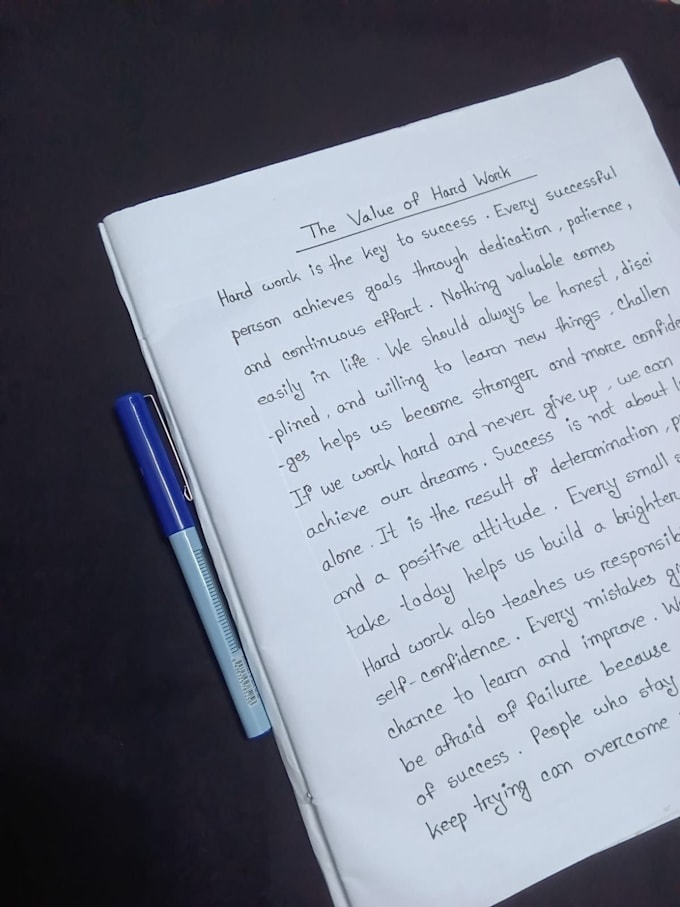 The Value of Hard Work
Hard work is the key to success. Every successful
person achieves goals through dedication, patience,
and continuous effort. Nothing valuable comes
easily in life. We should always be honest, disci
-plined, and willing to learn new things. Challen
-ges helps us become stronger and more
If we work hard and never give up, we can
achieve our dreams. Success is not about
alone. It is the result of determination,
and a positive attitude. Every small
take today helps us build a brighter
Hard work also teaches us
self-confidence. Every mistakes
chance to learn and improve.
be afraid of failure because
of success. People who stay
keep trying can overcome